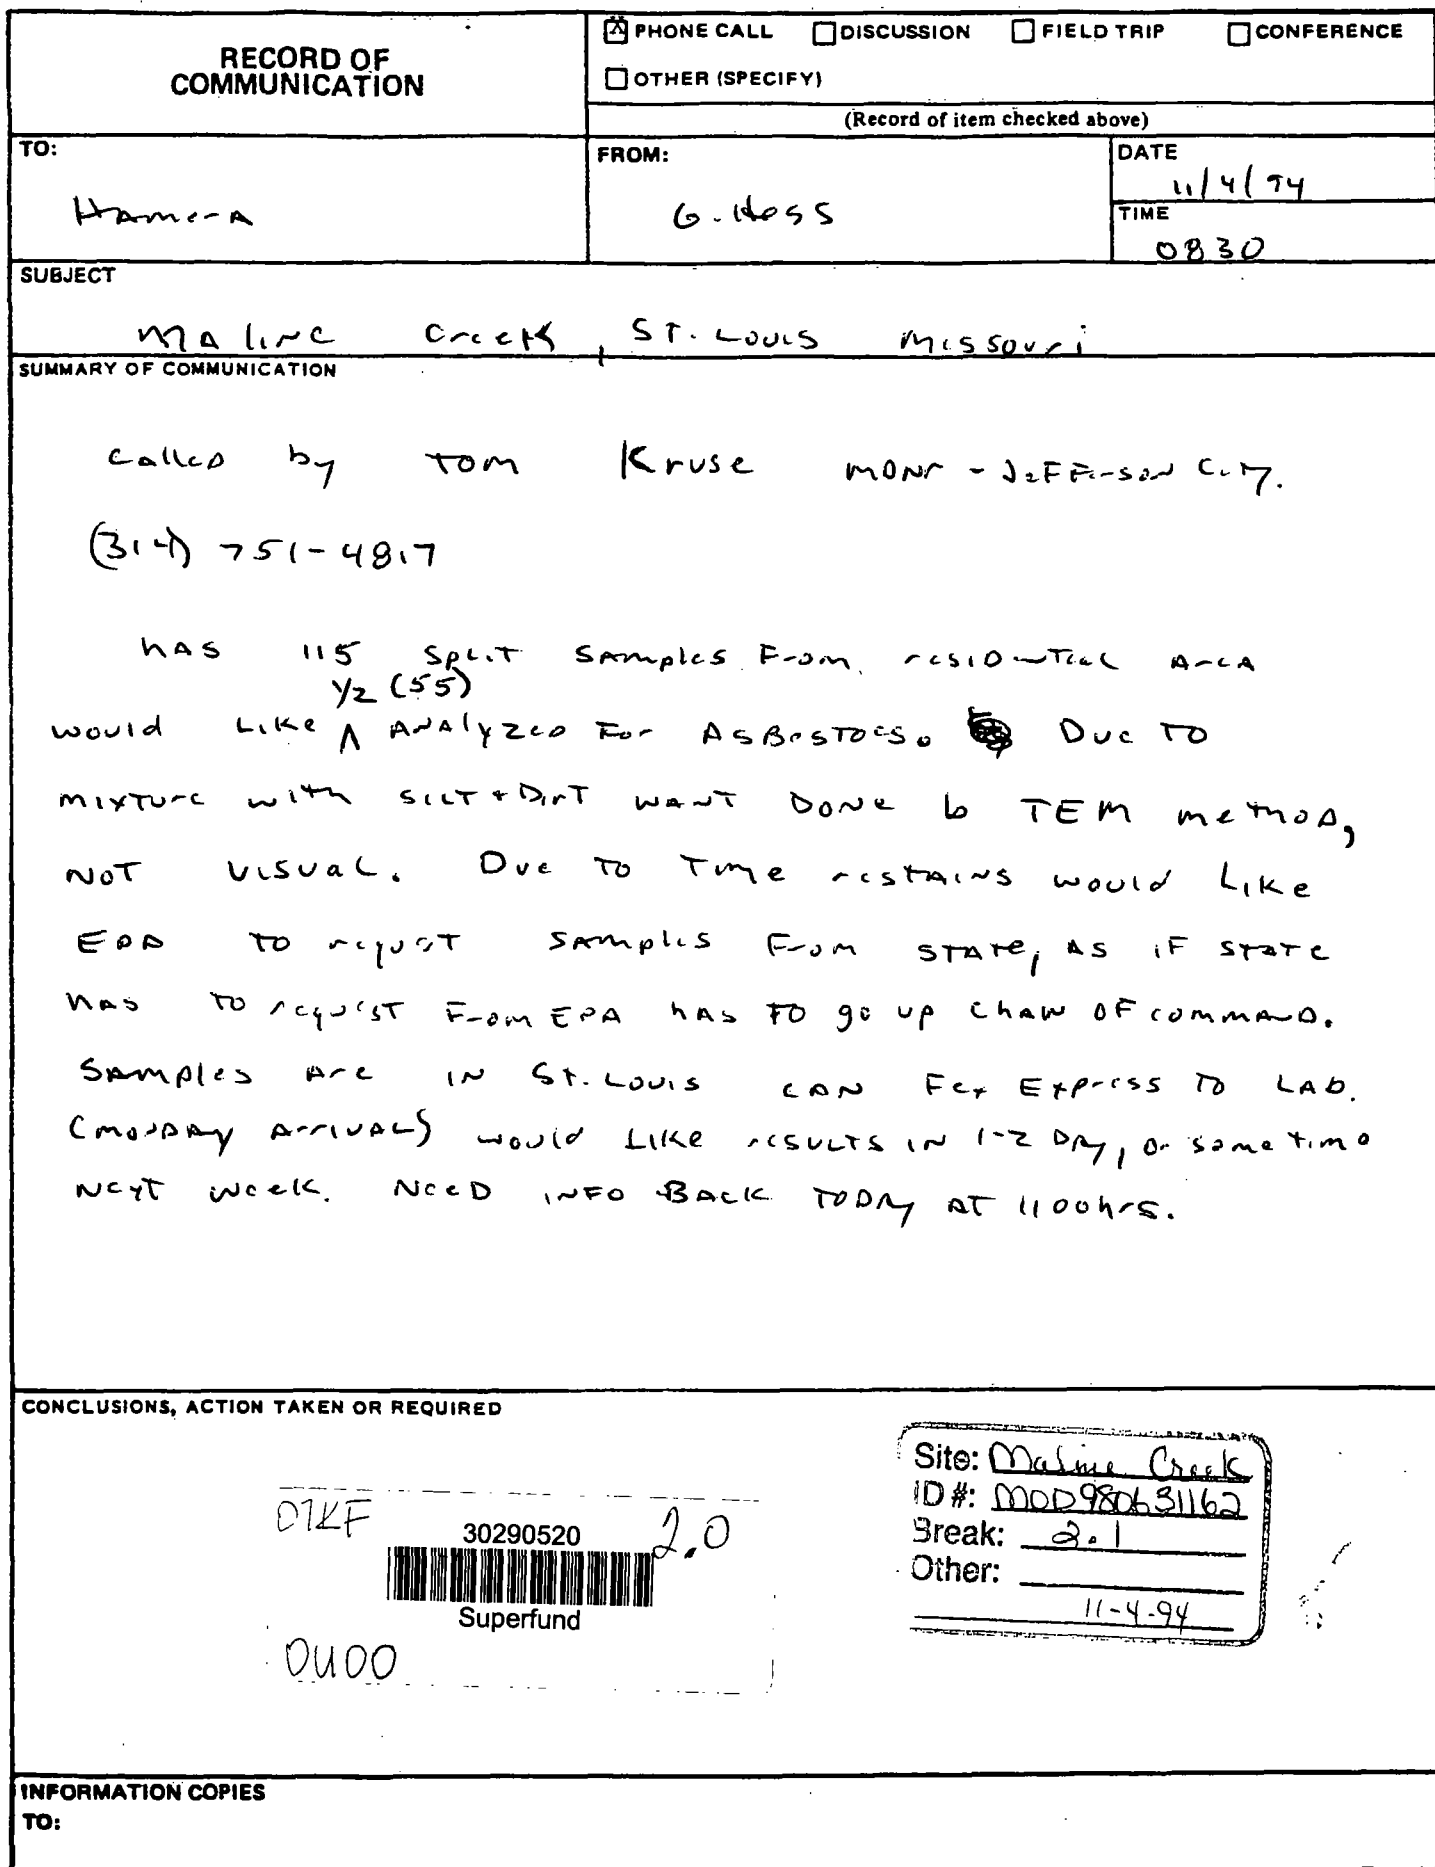 RECORD OF
COMMUNICATION
☒ PHONE CALL ☐ DISCUSSION ☐ FIELD TRIP ☐ CONFERENCE
☐ OTHER (SPECIFY)
(Record of item checked above)
TO:
Hamera
FROM:
G. Hess
DATE
11/4/94
TIME
0830
SUBJECT
Maline Creek, ST. Louis Missouri
SUMMARY OF COMMUNICATION
called by Tom Kruse MDNR - Jefferson City.
(314) 751-4817
has 115 split samples from residential area
1/2 (55)
would like ^ analyzed for Asbestoes. Due to
mixture with silt + Dirt want Done b TEM method,
NOT visual. Due to Time restains would Like
EPA to request samples from state, as if state
has to request from EPA has to go up chain of command.
Samples are in St. Louis can Fex Express to LAB.
(monday arrival) would like results in 1-2 Day, or some time
next week. Need info Back today at 1100hrs.
CONCLUSIONS, ACTION TAKEN OR REQUIRED
07KF
30290520
2.0
Superfund
OU00
Site: Maline Creek
ID #: MOD980631162
Break: 2.1
Other:
11-4-94
INFORMATION COPIES
TO: